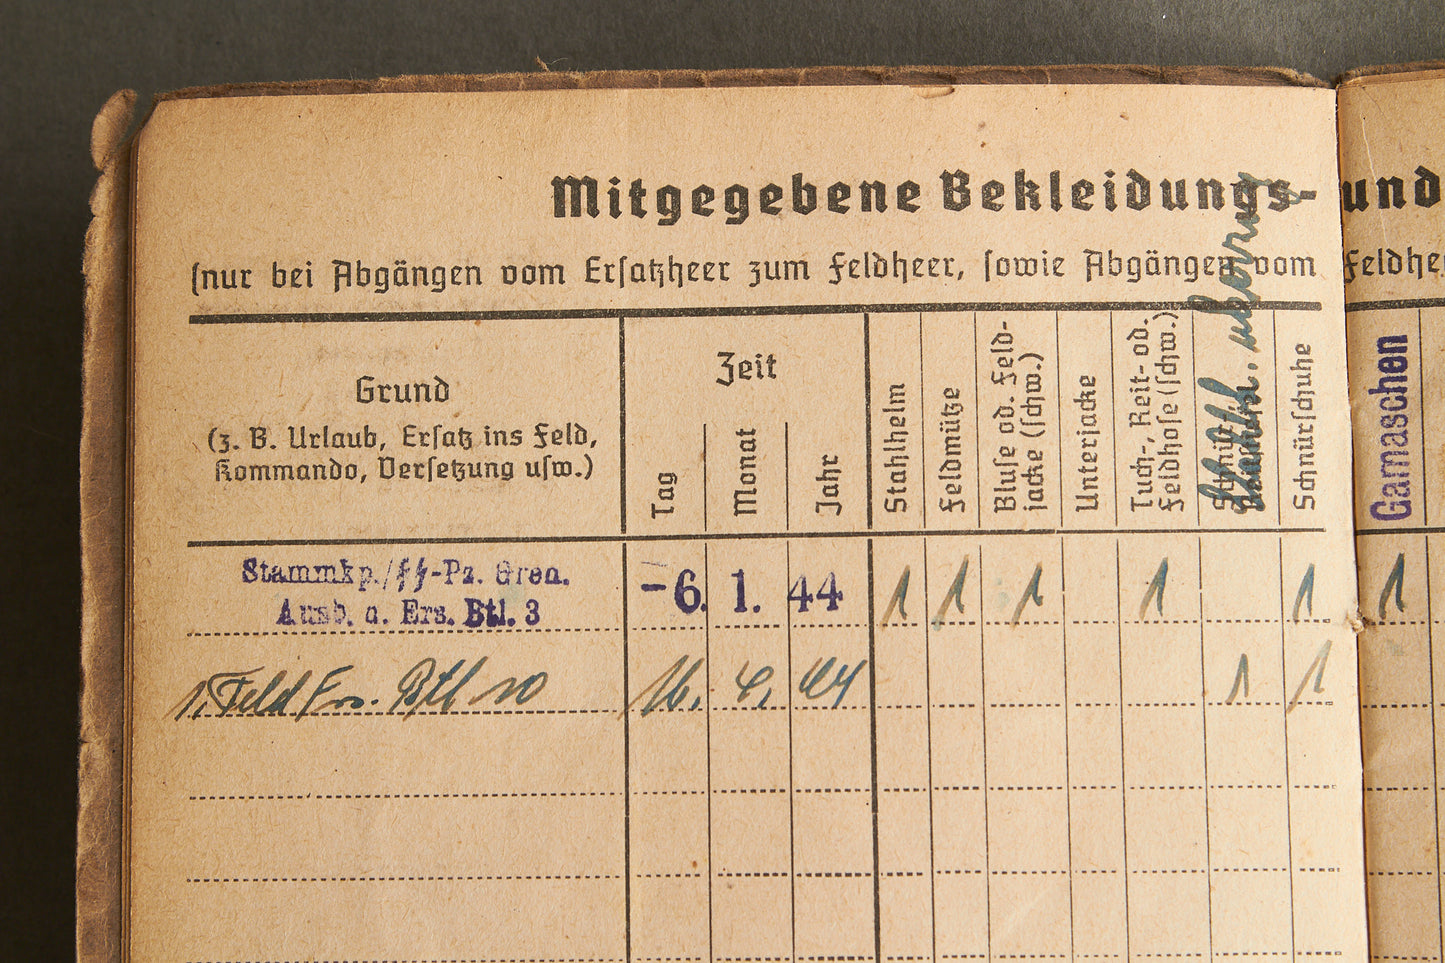 Mitgegebene Bekleidungs- und
(nur bei Abgängen vom Ersatzheer zum Feldheer, sowie Abgängen vom Feldhe
Grund
(z. B. Urlaub, Ersatz ins Feld,
Kommando, Versetzung usw.)
Zeit
Tag
Monat
Jahr
Stahlhelm
Feldmütze
Bluse od. Feld-
jacke (schw.)
Unterjacke
Tuch-, Reit- od.
Feldhose (schw.)
Schnürschuhe
Gamaschen
Stammkp./ϟϟ-Pz. Gren.
Ausb. u. Ers. Btl. 3
-6. 1. 44 1 1 1 1 1 1
1. Feld Ers. Btl 10 16. 4. 44 1 1